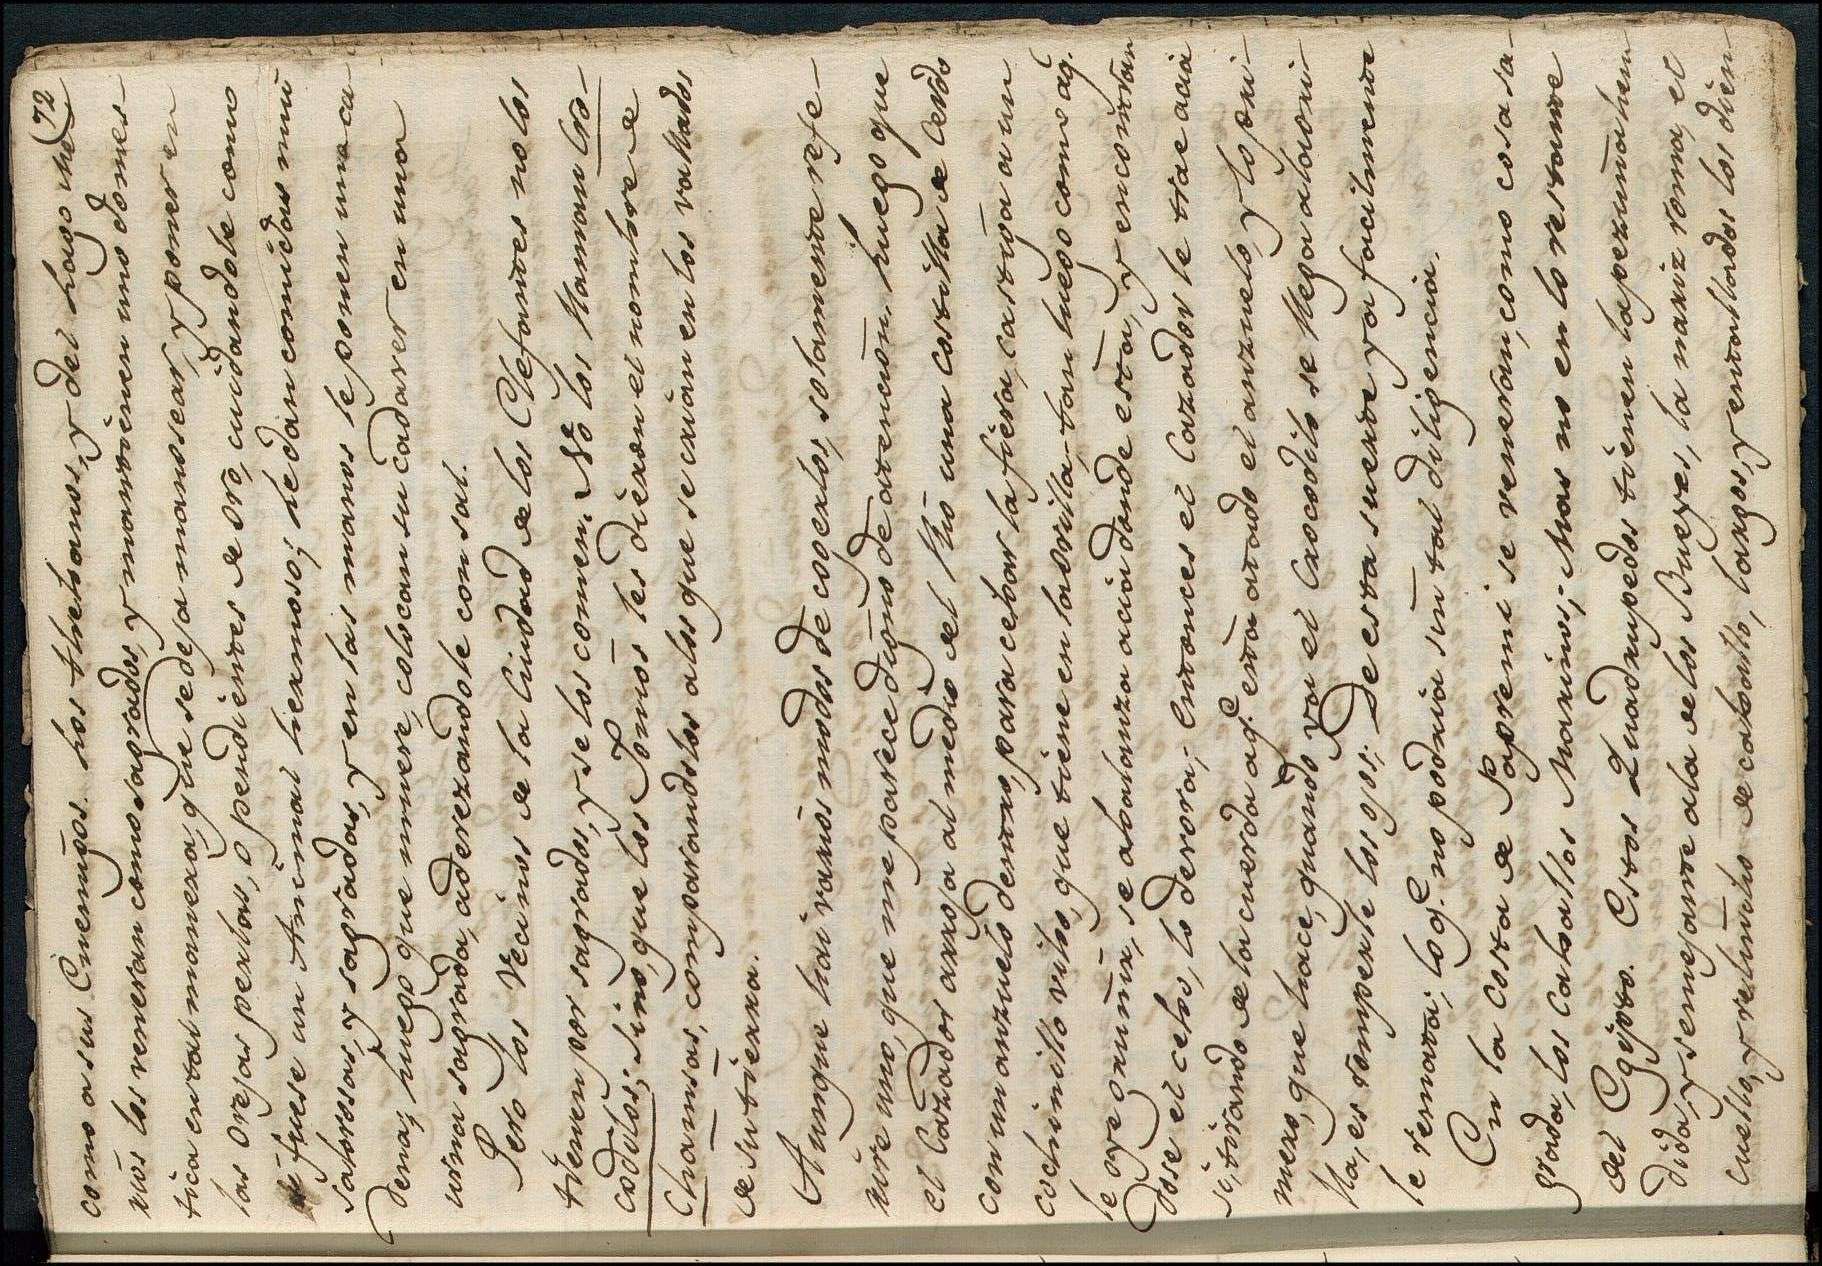 (72
como a sus Enemigos. Los Thebanos, y del Lago Me
rios los veneran como sagrados, y mantienen uno domes-
tica en tal manera, que se deja manosear, y poner en
las orejas perlas, o pendientes de oro, cuidandole como
si fuese un Animal hermoso; le dan comidas mui
sabrosas, y sagradas, y en las manos le ponen una ca-
dena; luego que muere, colocan su cadaver en una
urna sagrada, aderezandole con sal.
Pero los Vecinos de la Ciudad de los Elefantes no los
tienen por sagrados, y se los comen. No los llaman Cro-
codilos; sino, que los Jonios les dieron el nombre de
Chamsas, comparandolos a los que se crian en los vallados
de su tierra.
Aunque hai varios modos de cogerlos, solamente refe-
rire uno, que me parece digno de atencion. Luego que
el Cazador arroja al medio del Rio una costilla de Cerdo
con un anzuelo dentro, para cebar la fiera, castiga a un
cochinillo vibo, que tiene en la orilla, tan luego como aq.
le oye gruñir, se abalanza acia donde esta, y encontran
dose el cebo, lo devora; Entonces el Cazador le trae acia
si, tirando de la cuerda a q.e esta atado el anzuelo, y lo pri-
mero, que hace, quando va el Crocodilo se llega a la ori-
lla, es romperle los ojos; De esta suerte ya facilmente
le remata; lo q.e no podria sin tal diligencia.
En la Costa de Papremi se veneran, como cosa sa-
grada, los Caballos Marinos; Mas no en lo restante
del Egipto. Estos Quadrupedos tienen la pezuña hen
dida, y semejante a la de los Bueyes, la nariz roma, el
cuello, y relincho de caballo, largos, y embollados los dien